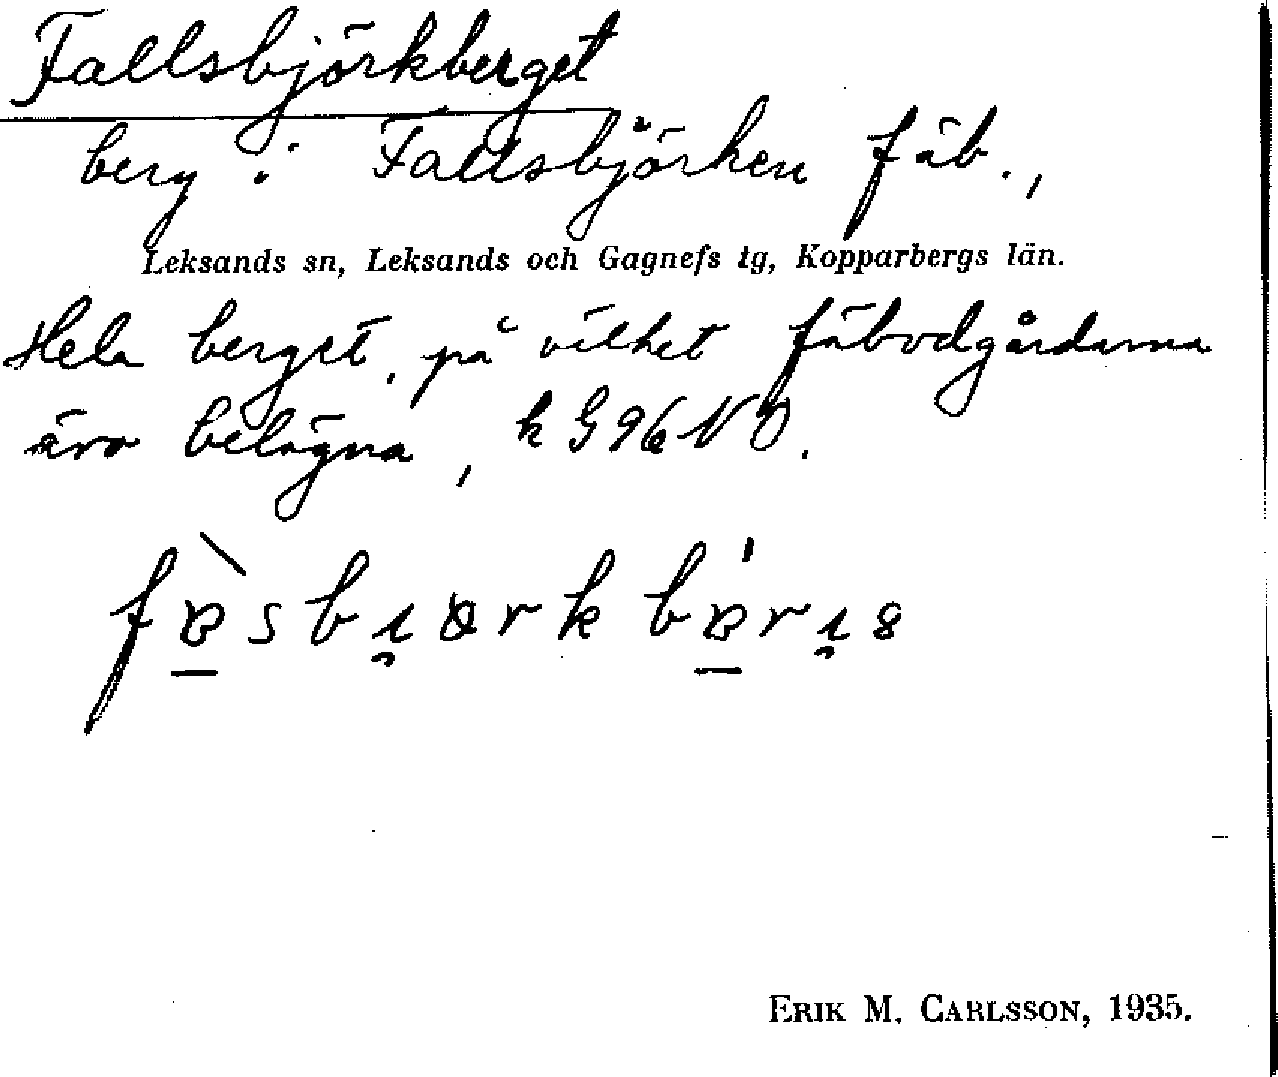 Fallsbjörkberget
berg i Fallsbjörken fäb.,
Leksands sn, Leksands och Gagnefs tg, Kopparbergs län.
Hela berget, på vilket fäbodgårdarna
äro belägna, k G 96 NO.
ERIK M. CARLSSON, 1935.